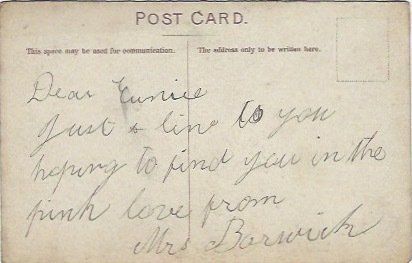 POST CARD.
This space may be used for communication.
The address only to be written here.
Dear Eunice
Just a line to you
hoping to find you in the
pink love from
Mrs Barwick